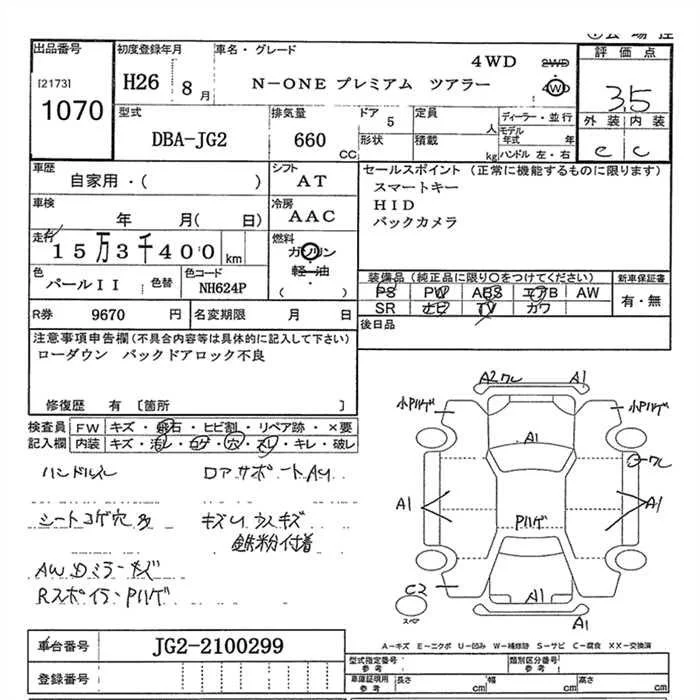 出品番号
[2173]
1070
初度登録年月
H26 8 月
車名・グレード
4WD
N-ONE プレミアム ツアラー
2WD
4WD
評価点
3.5
外装 内装
e c
型式
DBA-JG2
排気量
660 CC
ドア 5
形状
定員 人
積載 kg
ディーラー・並行
モデル年式 年
ハンドル 左・右
車歴
自家用・( )
シフト
AT
セールスポイント (正常に機能するものに限ります)
スマートキー
HID
バックカメラ
車検
年 月( 日)
冷房
AAC
走行
15万3千400 km
燃料
ガソリン
軽油
( )
色
パールII
色替
色コード
NH624P
装備品(純正品に限り○をつけてください)
PS PW ABS エアB AW
SR ナビ TV カワ
新車保証書
有・無
R券 9670 円
名変期限 月 日
後日品
注意事項申告欄(不具合内容等は具体的に記入して下さい)
ローダウン バックドアロック不良
修復歴 有 [箇所 ]
検査員
記入欄
FW キズ・飛石・ヒビ割・リペア跡・×要
内装 キズ・汚レ・コゲ・穴・スレ・キレ・破レ
ハンドルスレ
ロアサポートAY
シートコゲ穴多
キズUウスキズ
鉄粉付着
AWDミラーキズ
RスポイラーPハゲ
A2ワレ
A1
小Pハゲ
小Pハゲ
A1
ワレ
A1
A1
Pハゲ
C2
スペア
A1
A1
A-キズ E-エクボ U-凹み W-補修跡 S-サビ C-腐食 XX-交換済
車台番号
JG2-2100299
登録番号
型式指定番号
参考
類別区分番号
参考
車庫証明用
参考
長さ cm
幅 cm
高さ cm